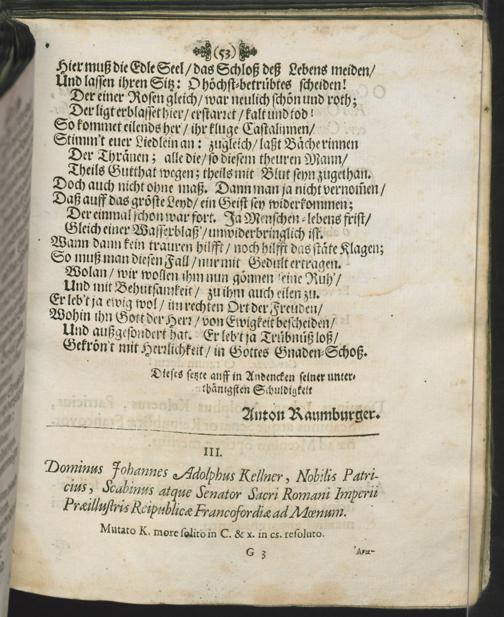 (53)
Hier muß die Edle Seel / das Schloß deß Lebens meiden /
Und lassen ihren Sitz: O höchst-betrübtes scheiden!
Der einer Rosen gleich / war neulich schön und roth;
Der ligt erblasset hier / erstarret / kalt und tod:
So kommet eilends her / ihr kluge Castalinnen /
Stimm't euer Liedlein an: zugleich / laßt Bäche rinnen
Der Thränen; alle die / so diesem theuren Mann /
Theils Gutthat wegen; theils mit Blut seyn zugethan.
Doch auch nicht ohne maß. Dann man ja nicht vernom̃en /
Daß auff das gröste Leyd / ein Geist sey widerkommen;
Der einmal schon war fort. Ja Menschen-lebens frist /
Gleich einer Wasserblaß / unwiderbringlich ist.
Wann dann kein trauren hilfft / noch hilfft das stäte Klagen;
So muß man diesen Fall / nur mit Gedult ertragen.
Wolan / wir wollen ihm nun gönnen seine Ruh' /
Und mit Behutsamkeit / zu ihm auch eilen zu.
Er leb't ja ewig wol / im rechten Ort der Freuden /
Wohin ihn Gott der Herr / von Ewigkeit bescheiden /
Und außgesondert hat. Er leb't ja Trübnüß loß /
Gekrön't mit Herrlichkeit / in Gottes Gnaden-Schoß.
Dieses setzte auff in Andencken seiner unter-
thänigsten Schuldigkeit
Anton Raumburger.
III.
Dominus Johannes Adolphus Kellner, Nobilis Patri-
cius, Scabinus atque Senator Sacri Romani Imperii
Præillustris Reipublicæ Francofordiæ ad Mœnum.
Mutato K. more solito in C. & x. in cs. resoluto.
G 3